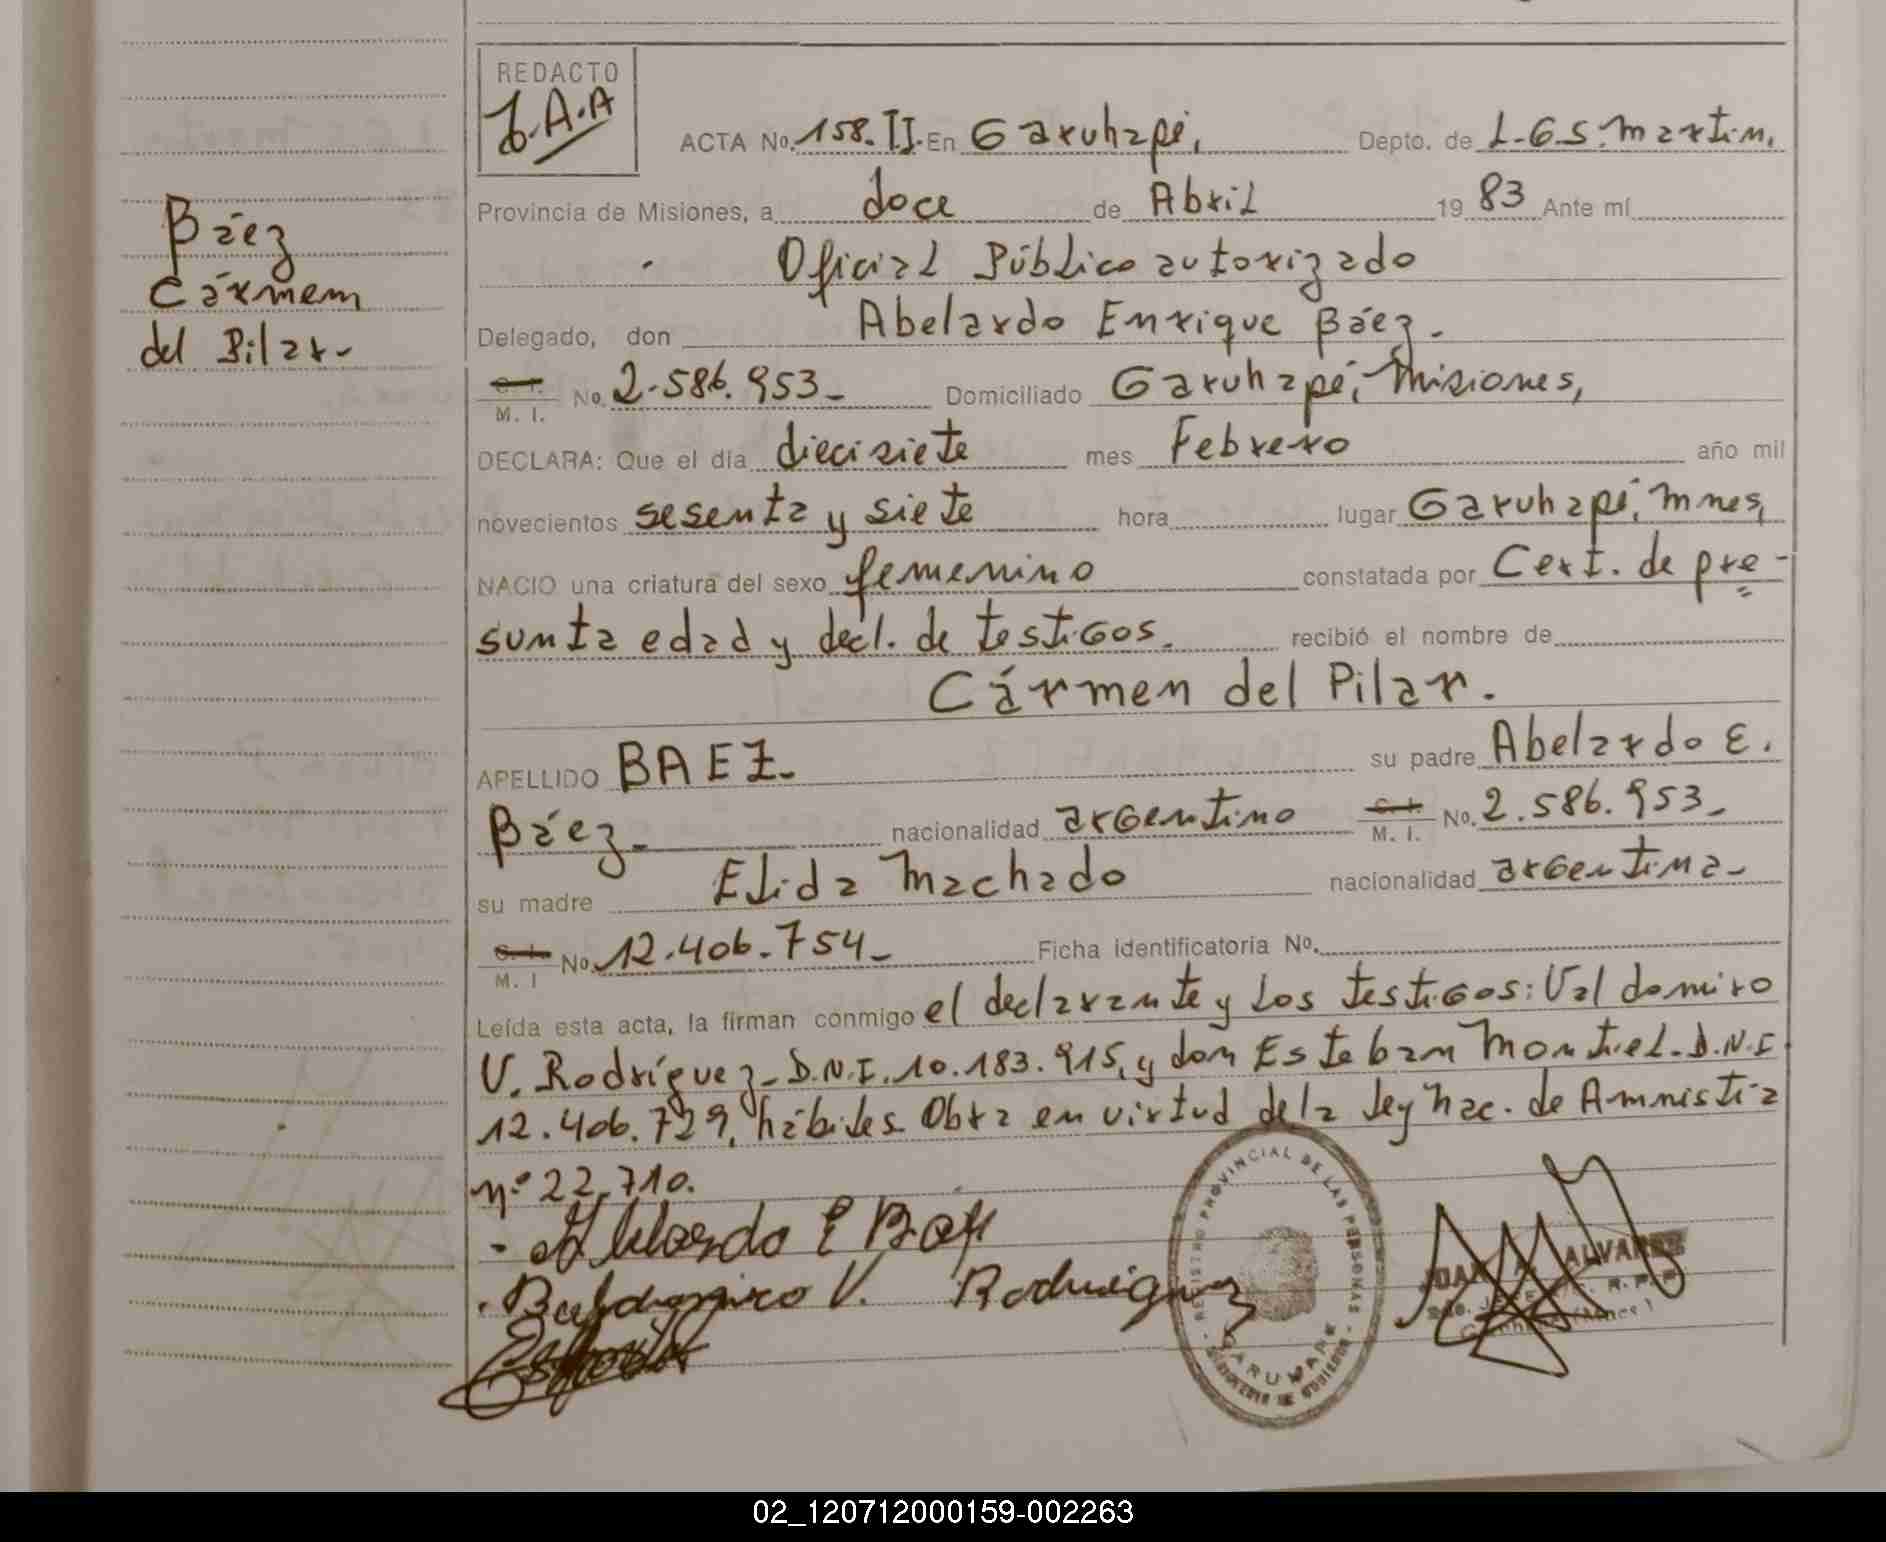 REDACTO
J.A.A
ACTA No. 158.II. En Garuhapé, Depto. de L.G.S. Martin,
Provincia de Misiones, a doce de Abril 19 83 Ante mí
Oficial Público autorizado
Báez
Cármem
del Pilar.-
Delegado, don Abelardo Enrique Báez.
C. I.
M. I. No. 2.586.953_ Domiciliado Garuhapé, Misiones,
DECLARA: Que el día diecisiete mes Febrero año mil
novecientos sesenta y siete hora lugar Garuhapé, Mnes,
NACIO una criatura del sexo femenino constatada por Cert. de pre-
sunta edad y decl. de testigos. recibió el nombre de
Cármen del Pilar.
APELLIDO BAEZ_ su padre Abelardo E.
Báez_ nacionalidad argentino C. I.
M. I. No. 2.586.953_
su madre Elida Machado nacionalidad argentina_
C. I.
M. I No. 12.406.754_ Ficha identificatoria No.
Leída esta acta, la firman conmigo el declarante y los testigos: Valdomiro
V. Rodríguez_ D.N.I. 10.183.915, y don Esteban Montiel_ D.N.I
12.406.729, hábiles Obra en virtud de la ley Nac. de Amnistia
nº 22.710.
- Abelardo E Baez
. Baldomiro V. Rodriguez
REGISTRO PROVINCIAL DE LAS PERSONAS
GARUHAPE
MINISTERIO DE GOBIERNO
ALVAREZ
02_120712000159-002263